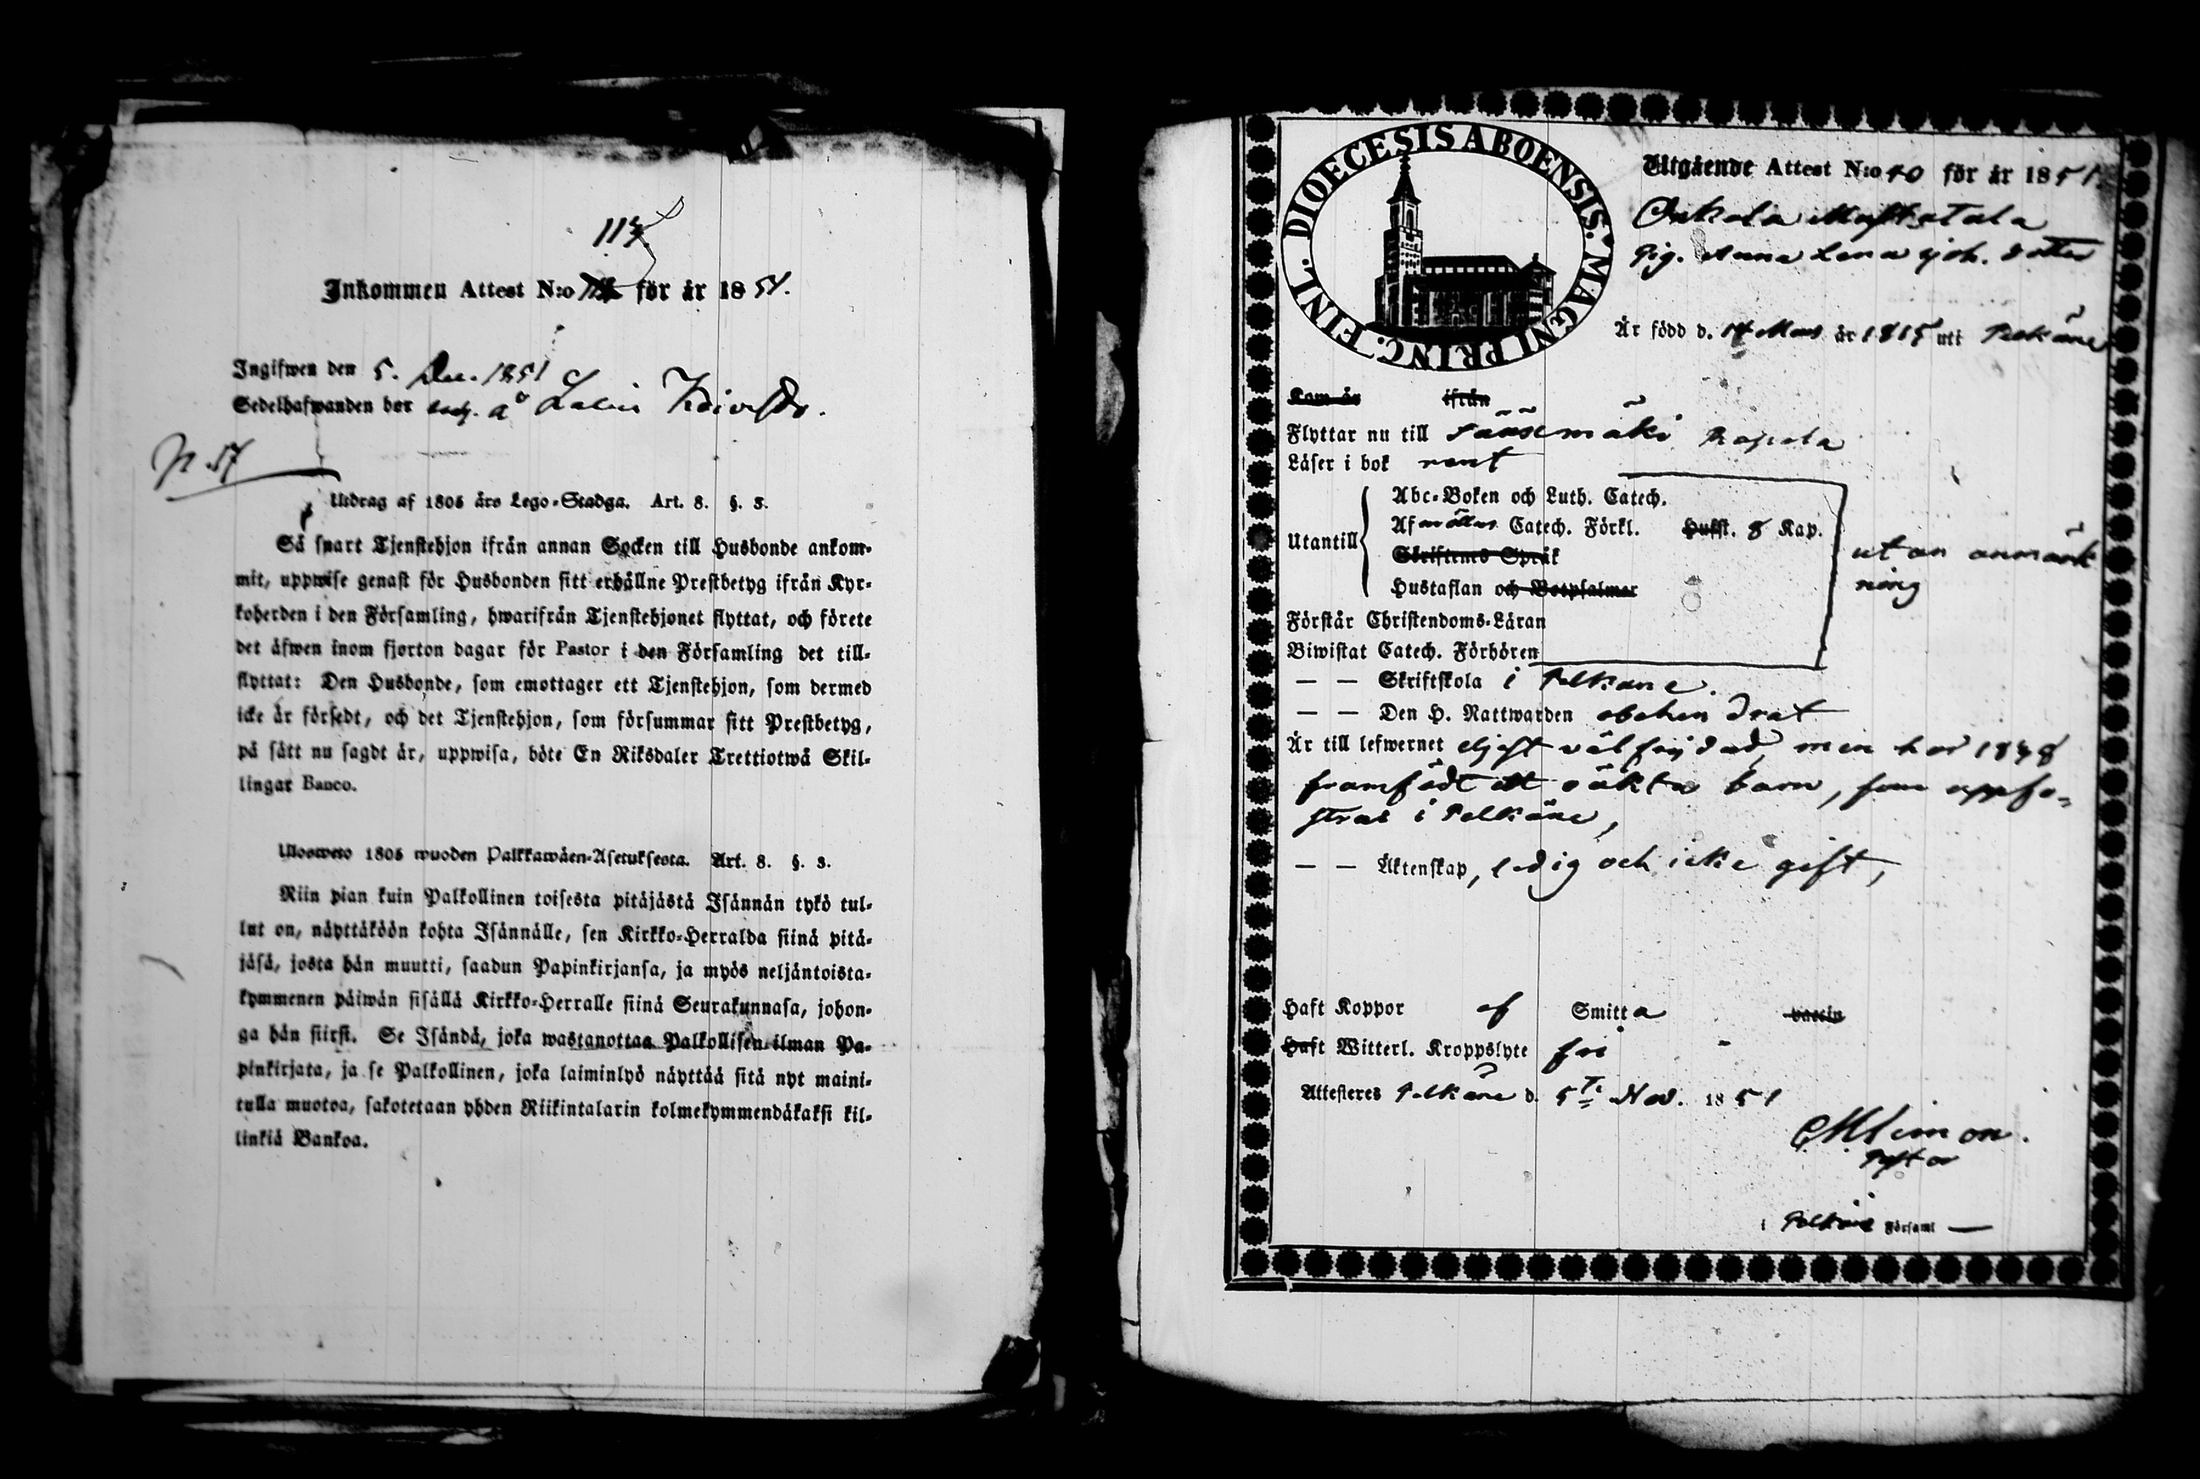 113
Inkommen Attest N:o för år 1851.
Ingifwen den 5. Dec. 1851
Sedelhafwanden bor å
p. 57
Utdrag af 1805 års Lego-Stadga. Art. 8. §. 3.
Så snart Tjenstehjon ifrån annan Socken till Husbonde ankom-
mit, uppwise genast för Husbonden sitt erhållne Prestbetyg ifrån Kyr-
koherden i den Församling, hwarifrån Tjenstehjonet flyttat, och förete
det äfwen inom fjorton dagar för Pastor i den Församling det till-
flyttat: Den Husbonde, som emottager ett Tjenstehjon, som dermed
icke är försedt, och det Tjenstehjon, som försummar sitt Prestbetyg,
på sätt nu sagdt är, uppwisa, böte En Riksdaler Trettiotwå Skil-
lingar Banco.
Ulosweto 1805 wuoden Palkkawäen-Asetuksesta. Art. 8. §. 3.
Niin pian kuin Palkollinen toisesta pitäjästä Isännän tykö tul-
lut on, näyttäköön kohta Isännälle, sen Kirkko-Herralda siinä pitä-
jäsä, josta hän muutti, saadun Papinkirjansa, ja myös neljäntoista-
kymmenen päiwän sisällä Kirkko-Herralle siinä Seurakunnasa, johon-
ga hän siirst. Se Isändä, joka wastanottaa Palkollisen ilman Pa-
pinkirjata, ja se Palkollinen, joka laiminlyö näyttää sitä nyt maini-
tulla muotoa, sakotetaan yhden Riikintalarin kolmekymmendäkaksi kil-
linkiä Bankoa.
DIOECESIS ABOENSIS. MAGNI PRINC. FINL.
Utgående Attest N:o 40 för år 1851.
Onkala
Pig. Anna Lena Joh. dotter
Är född d. 14 Mars år 1815 uti Pelkäne
Kom år ifrån
Flyttar nu till Sääxmäki
Läser i bok rent
Utantill
Abc-Boken och Luth. Catech.
Catech. Förkl. Hufst. 8 Kap.
Skriftens Språk
Hustaflan och Botpsalmer
utan anmärk
ning
Förstår Christendoms-Läran
Biwistat Catech. Förhören
— — Skriftskola i Pelkäne.
— — Den H. Nattwarden obehindrat
Är till lefwernet eljest välfrejdad, men har 1838
framfödt ett oäkta barn, som uppfo-
stras i Pelkäne,
— — Äktenskap, ledig och icke gift,
Haft Koppor af Smitta vaccin
Haft Witterl. Kroppslyte fri
Attesteres Pelkäne d. 5te Nov. 1851
Pastor
i Pelkäne Församl